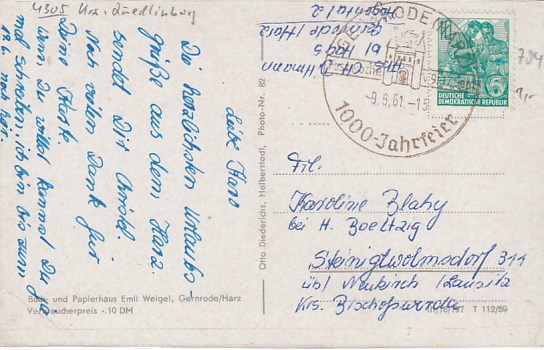 4305 Krs. Quedlinburg
Liebe Karo
Die herzlichsten Urlaubs-
grüße aus dem Harz
sendet Dir Christel.
Noch vielen Dank für
Deine Karte.
Wann Du willst kannst Du ja
mal schreiben, ich bin bis zum
18.6. noch hier.
Buch- und Papierhaus Emil Weigel, Gernrode/Harz
Verbraucherpreis -.10 DM
Otto Diederichs, Halberstadt, Photo-Nr. 82
bei
Gernrode/Harz
Hagental 2
RODE
-9.6.61.-18
1000-Jahrfeier
DEUTSCHE
DEMOKRATISCHE REPUBLIK
Frl.
Karoline Blahy
bei H. Boeltzig
Steinigtwolmsdorf 311
übl Neukirch / Lausitz
Krs. Bischofswerda
III/18/197 T 112/59